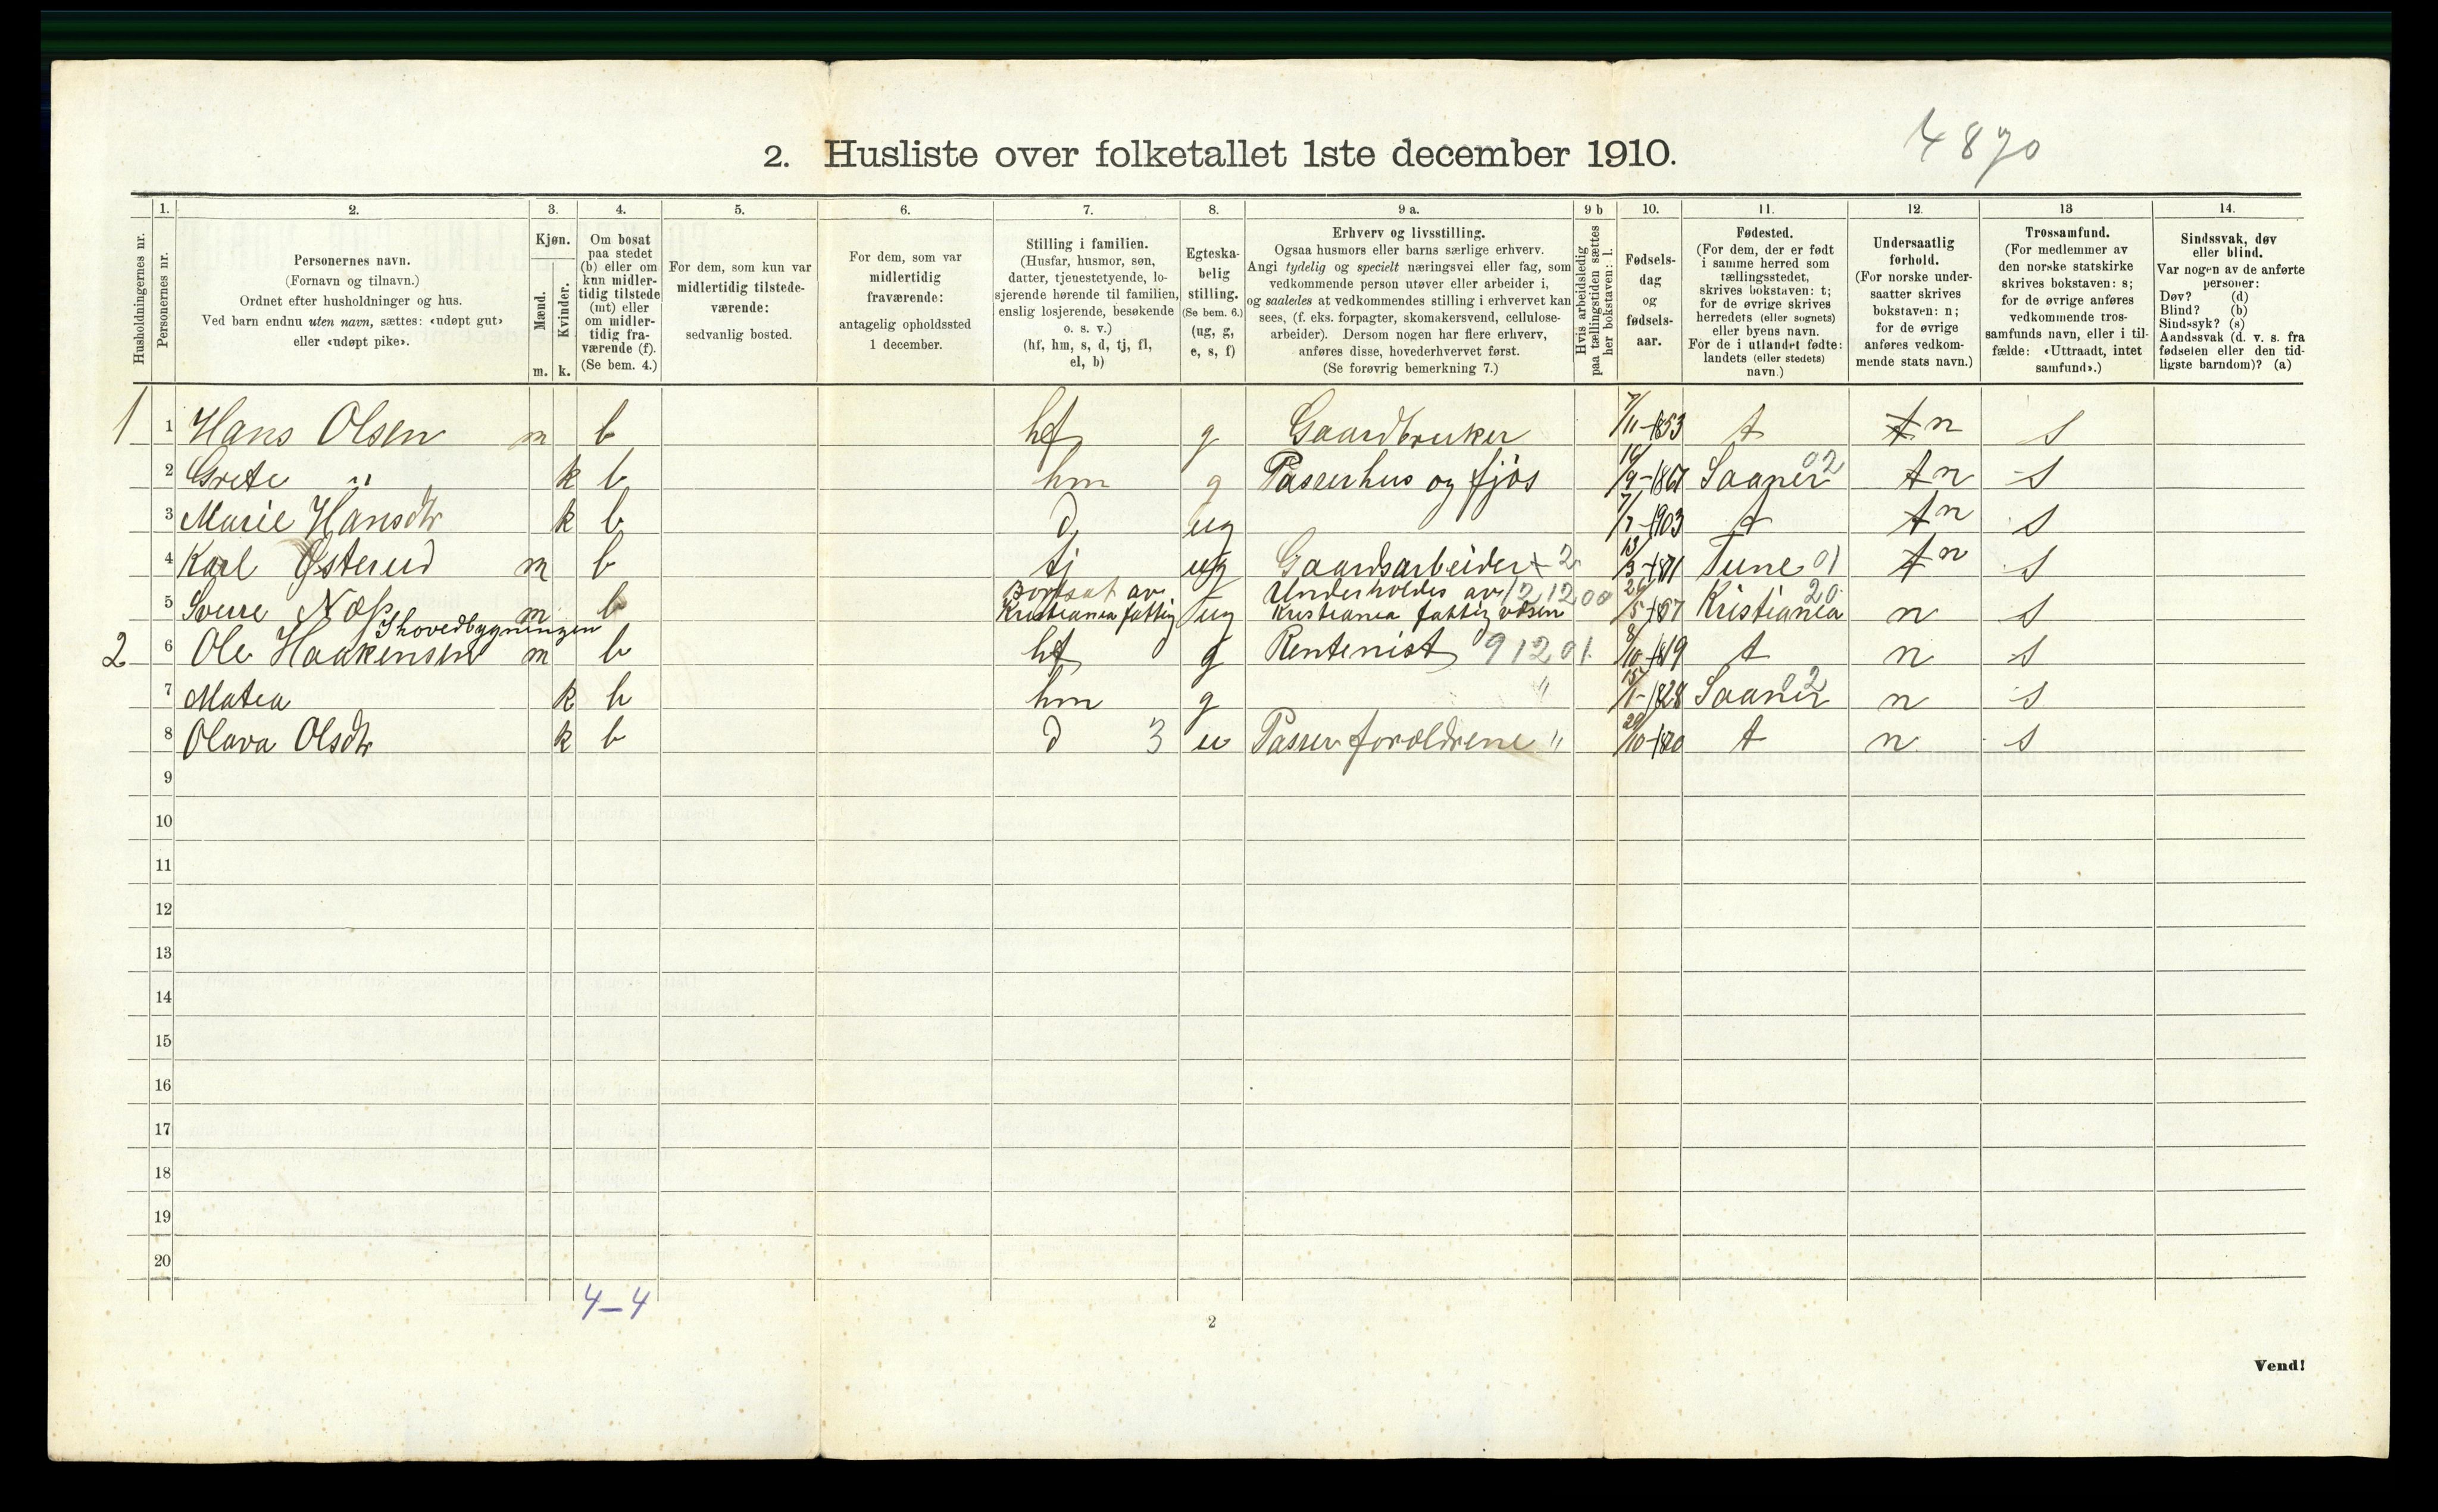 4870
2. Husliste over folketallet 1ste december 1910.
1. 2. 3. 4. 5. 6. 7. 8. 9 a. 9 b 10. 11. 12. 13 14.
Husholdningernes nr.
Personernes nr.
Personernes navn.
(Fornavn og tilnavn.)
Ordnet efter husholdninger og hus.
Ved barn endnu uten navn, sættes: «udøpt gut»
eller «udøpt pike».
Kjøn.
Mænd.
Kvinder.
m. k.
Om bosat
paa stedet
(b) eller om
kun midler-
tidig tilstede
(mt) eller
om midler-
tidig fra-
værende (f).
(Se bem. 4.)
For dem, som kun var
midlertidig tilstede-
værende:
sedvanlig bosted.
For dem, som var
midlertidig
fraværende:
antagelig opholdssted
1 december.
Stilling i familien.
(Husfar, husmor, søn,
datter, tjenestetyende, lo-
sjerende hørende til familien,
enslig losjerende, besøkende
o. s. v.)
(hf, hm, s, d, tj, fl,
el, b)
Egteska-
belig
stilling.
(Se bem. 6.)
(ug, g,
e, s, f)
Erhverv og livsstilling.
Ogsaa husmors eller barns særlige erhverv.
Angi tydelig og specielt næringsvei eller fag, som
vedkommende person utøver eller arbeider i,
og saaledes at vedkommendes stilling i erhvervet kan
sees, (f. eks. forpagter, skomakersvend, cellulose-
arbeider). Dersom nogen har flere erhverv,
anføres disse, hovederhvervet først.
(Se forøvrig bemerkning 7.)
Hvis arbeidsledig
paa tællingstiden sættes
her bokstaven: l.
Fødsels-
dag
og
fødsels-
aar.
Fødested.
(For dem, der er født
i samme herred som
tællingsstedet,
skrives bokstaven: t;
for de øvrige skrives
herredets (eller sognets)
eller byens navn.
For de i utlandet fødte:
landets (eller stedets)
navn.)
Undersaatlig
forhold.
(For norske under-
saatter skrives
bokstaven: n;
for de øvrige
anføres vedkom-
mende stats navn.)
Trossamfund.
(For medlemmer av
den norske statskirke
skrives bokstaven: s;
for de øvrige anføres
vedkommende tros-
samfunds navn, eller i til-
fælde: «Uttraadt, intet
samfund».)
Sindssvak, døv
eller blind.
Var nogen av de anførte
personer:
Døv? (d)
Blind? (b)
Sindssyk? (s)
Aandssvak (d. v. s. fra
fødselen eller den tid-
ligste barndom)? (a)
1 1 Hans Olsen m b hf g Gaardbruker 7/11-1853 t t n s
2 Grete " k b hm g Passer hus og fjøs /9-186 Saaner 02 t n s
3 Marie Hansdtr k b d ug 7/7-1903 t t n s
4 Karl Østerud m b tj ug Gaardsarbeider 2 13/3-1871 Tune 01 t n s
5 Sverre m b Bortsat av Kristiania fattig ug Underholdes av Kristiania fattigvæsen 121200 26/5-1897 Kristiania 20 n s
I hovedbygningen
2 6 Ole Haakensen m b hf g Rentenist 91201 8/10-1819 t n s
7 Matea k b hm g " 15/1-1828 Saaner 02 n s
8 Olava Olsdtr k b d 3 u Passer forældrene " 20/10-1870 t n s
9
10
11
12
13
14
15
16
17
18
19
20
4-4
2
Vend!